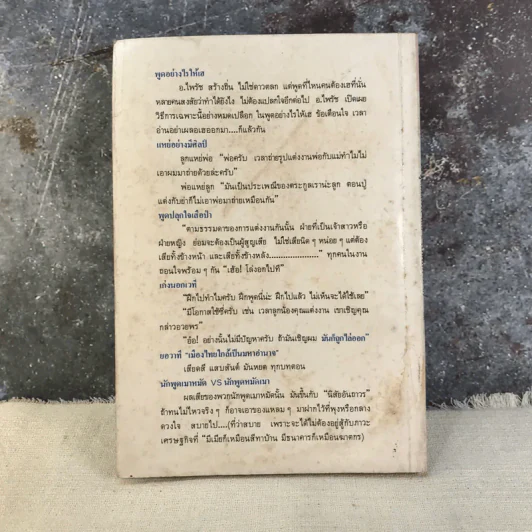 พูดอย่างไรให้เฮ
อ.ไพรัช สร้างถิ่น ไม่ใช่ดาวตลก แต่พูดที่ไหนคนต้องเฮที่นั่น
หลายคนสงสัยว่าทำได้ยังไง ไม่ต้องแปลกใจอีกต่อไป อ.ไพรัช เปิดเผย
วิธีการเฉพาะนี้อย่างหมดเปลือก ในพูดอย่างไรให้เฮ ข้อเตือนใจ เวลา
อ่านอย่าเผลอเฮออกมา....ก็แล้วกัน
แหย่อย่างมีศิลป์
ลูกแหย่พ่อ "พ่อครับ เวลาถ่ายรูปแต่งงานพ่อกับแม่ทำไมไม่
เอาผมมาถ่ายด้วยล่ะครับ"
พ่อแหย่ลูก "มันเป็นประเพณีของตระกูลเราน่ะลูก ตอนปู่
แต่งกับย่าก็ไม่เอาพ่อมาถ่ายเหมือนกัน"
พูดปลุกใจเสือป่า
"ตามธรรมดาของการแต่งงานกันนั้น ฝ่ายที่เป็นเจ้าสาวหรือ
ฝ่ายหญิง ย่อมจะต้องเป็นผู้สูญเสีย ไม่ใช่เสียนิด ๆ หน่อย ๆ แต่ต้อง
เสียทั้งข้างหน้า และเสียทั้งข้างหลัง......................" ทุกคนในงาน
ถอนใจพร้อม ๆ กัน "เฮ้อ! โล่งอกไปที"
เก่งนอกเวที
"ฝึกไปทำไมครับ ฝึกพูดนี่น่ะ ฝึกไปแล้ว ไม่เห็นจะได้ใช้เลย"
"มีโอกาสใช้ซีครับ เช่น เวลาลูกน้องคุณแต่งงาน เขาเชิญคุณ
กล่าวอวยพร"
"อ๋อ! อย่างนั้นไม่มีปัญหาครับ ถ้ามันเชิญผม มันก็ถูกไล่ออก"
ยอวาที "เมืองไทยใกล้เป็นมหาอำนาจ"
เสียดสี แสบสันต์ มันหยด ทุกบทตอน
นักพูดเมาหมัด VS นักพูดหมัดเมา
ผลเสียของพวกนักพูดเมาหมัดนั้น มันขึ้นกับ "นิสัยอันถาวร"
ถ้าทนไม่ไหวจริง ๆ ก็อาจเอาของแหลม ๆ มาฝากไว้ที่พุงหรือกลาง
ดวงใจ สบายไป....(ที่ว่าสบาย เพราะจะได้ไม่ต้องอยู่สู้กับภาวะ
เศรษฐกิจที่ "มีเมียก็เหมือนสีทาบ้าน มีธนาคารก็เหมือนฆาตกร)